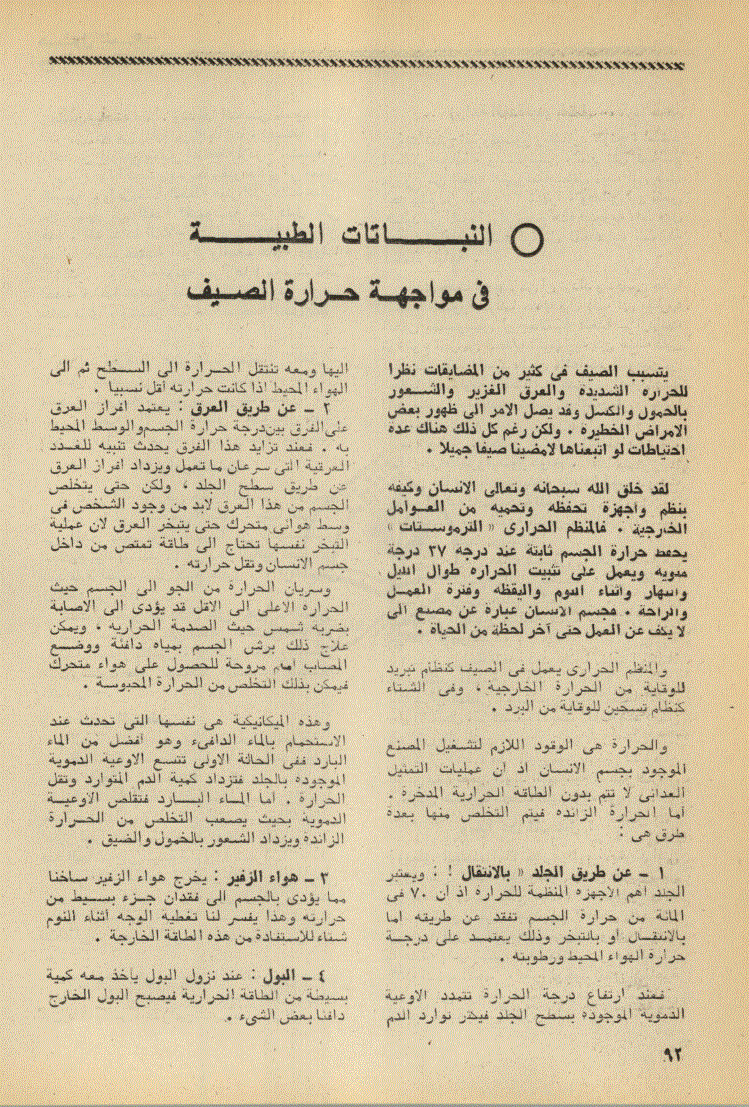 النبــــاتات الطبيــــة
فى مواجهـة حـرارة الصـيف
يتسبب الصيف فى كثير من المضايقات نظرا
للحراره الشديدة والعرق الغزير والشـعور
بالخمول والكسل وقد يصل الامر الى ظهور بعض
الامراض الخطيره . ولكن رغم كل ذلك هناك عدة
احتياطات لو اتبعناها لامضينا صيفا جميلا .
لقد خلق الله سبحانه وتعالى الانسان وكيفه
بنظم واجهزة تحفظه وتحميه من العـوامل
الخارجية . فالمنظم الحرارى « الترموستات »
يحفظ حرارة الجسم ثابتة عند درجه ٣٧ درجة
مئويه ويعمل على تثبيت الحراره طوال الليل
والنهار واثناء النوم واليقظه وفترة العمـل
والراحة . فجسم الانسان عبارة عن مصنع الى
لا يكف عن العمل حتى آخر لحظة من الحياة .
والمنظم الحرارى يعمل فى الصيف كنظام تبريد
للوقاية من الحرارة الخارجية ، وفى الشتاء
كنظام تسخين للوقاية من البرد .
والحرارة هى الوقود اللازم لتشغيل المصنع
الموجود بجسم الانسان اذ ان عمليات التمثيل
الغذائى لا تتم بدون الطاقه الحرارية المدخرة .
اما الحرارة الزائده فيتم التخلص منها بعدة
طرق هى :
١ ــ عن طريق الجلد « بالانتقال ! : ويعتبر
الجلد اهم الاجهزه المنظمة للحرارة اذ ان ٧٠ فى
المائة من حرارة الجسم تفقد عن طريقه اما
بالانتقـال او بالتبخر وذلك يعتمـد على درجـة
حرارة الهواء المحيط ورطوبته .
فـعند ارتفاع درجة الحرارة تتمدد الاوعية
الدموية الموجوده بسطح الجلد فيكثر توارد الدم
اليها ومعه تنتقل الحـرارة الى السـطح ثم الى
الهواء المحيط اذا كانت حرارته أقل نسبيا .
٢ ــ عن طريق العرق : يعتمد افراز العرق
على الفرق بين درجة حرارة الجسم والوسط المحيط
به . فعند تزايد هذا الفرق يحدث تنبيه للغـدد
العرقية التى سرعان ما تعمل ويزداد افراز العرق
عن طريق سطح الجلد ، ولكن حتى يتخلص
الجسم من هذا العرق لابد من وجود الشخص فى
وسط هوائى متحرك حتى يتبخر العرق لان عملية
التبخر نفسها تحتاج الى طاقة تمتص من داخل
جسم الانسان وتقل حرارته .
وسريان الحرارة من الجو الى الجسم حيث
الحراره الاعلى الى الاقل قد يؤدى الى الاصابة
بضربه شمس حيث الصدمة الحراريه ، ويمكن
علاج ذلك برش الجسم بمياه دافئة ووضـع
المصاب امام مروحة للحصول على هواء متحرك
فيمكن بذلك التخلص من الحرارة المحبوسة .
وهذه الميكانيكية هى نفسها التى تحدث عند
الاستحمام بالماء الدافىء وهو افضل من الماء
البارد ففى الحالة الاولى تتسع الاوعية الدموية
الموجوده بالجلد فتزداد كمية الدم المتوارد وتقل
الحرارة . اما المـاء البـارد فتقلص الاوعيـة
الدموية بحيث يصعب التخلص من الحـرارة
الزائدة ويزداد الشعور بالخمول والضيق .
٣ ــ هواء الزفير : يخرج هواء الزفير ساخنا
مما يؤدى بالجسم الى فقدان جـزء بسـيط من
حرارته وهذا يفسر لنا تغطيه الوجه أثناء النوم
شتاء للاستفادة من هذه الطاقة الخارجة .
٤ ــ البول : عند نزول البول ياخذ معه كمية
بسيطة من الطاقة الحرارية فيصبح البول الخارج
دافئا بعض الشىء .
٩٢